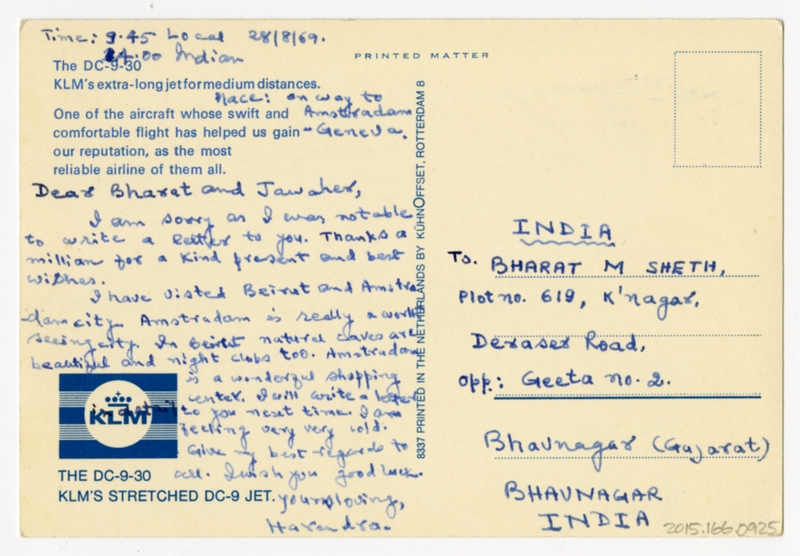 Time: 9.45 Local 28/8/69.
24.00 Indian
PRINTED MATTER
The DC-9-30
KLM's extra-long jet for medium distances.
Place: on way to
Amstradam
- Geneva.
One of the aircraft whose swift and
comfortable flight has helped us gain
our reputation, as the most
reliable airline of them all.
Dear Bharat and Jawaher,
I am sorry as I was not able
to write a letter to you. Thanks a
million for a kind present and best
wishes.
I have visted Beirut and Amstra-
dam city. Amstradam is really a worth
seeing city. In Beirut natural caves are
beautiful and night clubs too. Amstradam
is a wonderful shopping
center. I will write a letter
in detail to you next time. I am
feeling very very cold.
Give my best regards to
all. I wish you good luck.
yours loving,
Harendra.
KLM
THE DC-9-30
KLM'S STRETCHED DC-9 JET.
8337 PRINTED IN THE NETHERLANDS BY KÜHNOFFSET, ROTTERDAM 8
INDIA
To. BHARAT M SHETH,
Plot no. 619, K'nagar,
Deraser Road,
opp: Geeta no. 2.
Bhavnagar (Gujarat)
BHAVNAGAR
INDIA
2015.166.0925